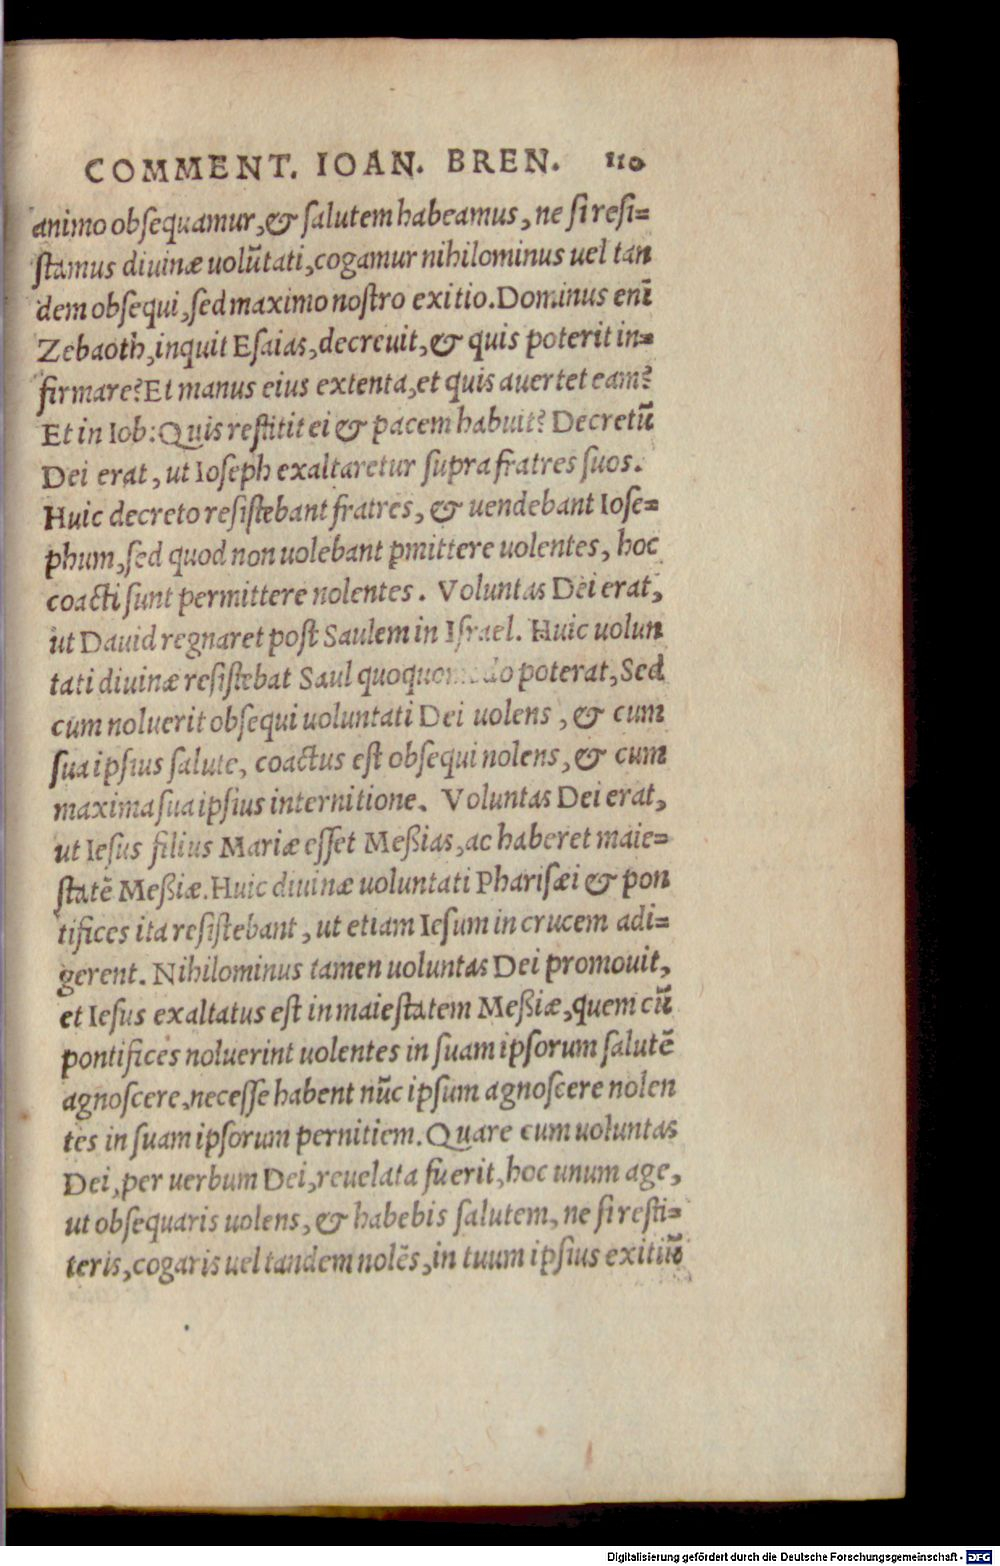 COMMENT. IOAN. BREN. 110
animo obſequamur, & ſalutem habeamus, ne ſi reſi=
ſtamus diuinæ uolūtati, cogamur nihilominus uel tan
dem obſequi, ſed maximo noſtro exitio. Dominus enī
Zebaoth, inquit Eſaias, decreuit, & quis poterit in=
firmare? Et manus eius extenta, et quis auertet eam?
Et in Iob: Quis reſtitit ei & pacem habuit? Decretū
Dei erat, ut Ioſeph exaltaretur ſupra fratres ſuos.
Huic decreto reſiſtebant fratres, & uendebant Ioſe=
phum, ſed quod non uolebant pmittere uolentes, hoc
coacti ſunt permittere nolentes. Voluntas Dei erat,
ut Dauid regnaret poſt Saulem in Iſrael. Huic uolun
tati diuinæ reſiſtebat Saul quoquomodo poterat, Sed
cum noluerit obſequi uoluntati Dei uolens, & cum
ſua ipſius ſalute, coactus eſt obſequi nolens, & cum
maxima ſua ipſius internitione. Voluntas Dei erat,
ut Ieſus filius Mariæ eſſet Meßias, ac haberet maie=
ſtatē Meßiæ. Huic diuinæ uoluntati Phariſæi & pon
tifices ita reſiſtebant, ut etiam Ieſum in crucem adi=
gerent. Nihilominus tamen uoluntas Dei promouit,
et Ieſus exaltatus eſt in maieſtatem Meßiæ, quem cū
pontifices noluerint uolentes in ſuam ipſorum ſalutē
agnoſcere, neceſſe habent nūc ipſum agnoſcere nolen
tes in ſuam ipſorum pernitiem. Quare cum uoluntas
Dei, per uerbum Dei, reuelata fuerit, hoc unum age,
ut obſequaris uolens, & habebis ſalutem, ne ſi reſti=
teris, cogaris uel tandem nolēs, in tuum ipſius exitiū
Digitalisierung gefördert durch die Deutsche Forschungsgemeinschaft - DFG